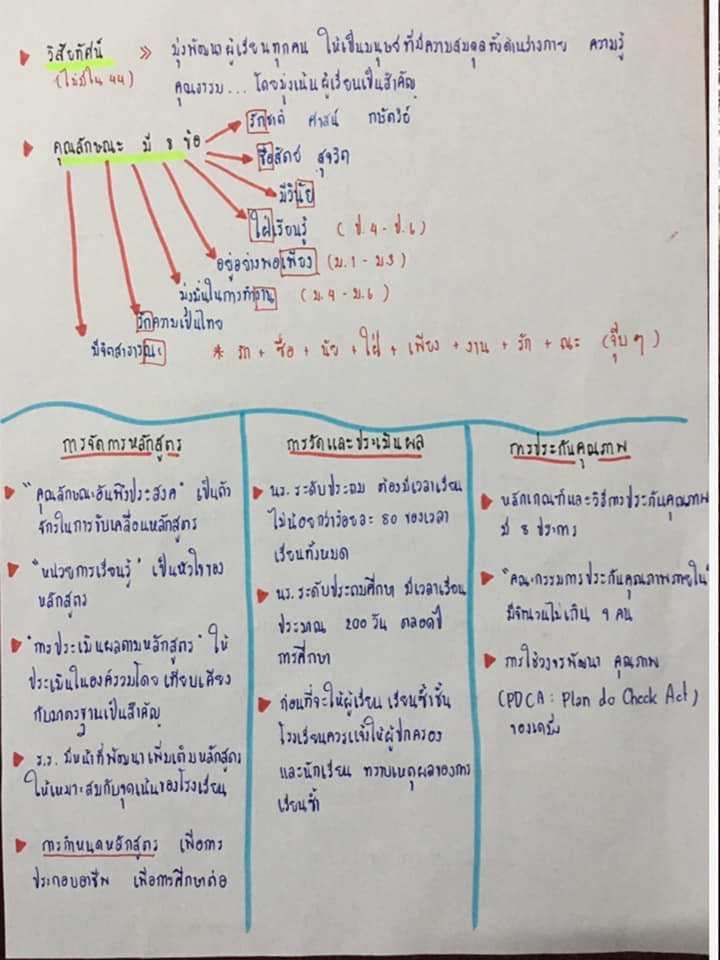 วิสัยทัศน์ » มุ่งพัฒนาผู้เรียนทุกคน ให้เป็นมนุษย์ที่มีความสมดุลทั้งด้านร่างกาย ความรู้
(ไม่มีใน 44) คุณธรรม... โดยมุ่งเน้นผู้เรียนเป็นสำคัญ
คุณลักษณะ มี 8 ข้อ
รักชาติ ศาสน์ กษัตริย์
ซื่อสัตย์ สุจริต
มีวินัย
ใฝ่เรียนรู้ (ป.4 - ป.6)
อยู่อย่างพอเพียง (ม.1 - ม.3)
มุ่งมั่นในการทำงาน (ม.4 - ม.6)
รักความเป็นไทย
มีจิตสาธารณะ
* รัก + ซื่อ + นัย + ใฝ่ + เพียง + งาน + รัก + ณะ (จุ๊บๆ)
การจัดการหลักสูตร
"คุณลักษณะอันพึงประสงค์" เป็นตัว
จักรในการขับเคลื่อนหลักสูตร
"หน่วยการเรียนรู้" เป็นหัวใจของ
หลักสูตร
"การประเมินผลตามหลักสูตร" ให้
ประเมินในองค์รวมโดย เทียบเคียง
กับมาตรฐานเป็นสำคัญ
ร.ร. มีหน้าที่พัฒนาเพิ่มเติมหลักสูตร
ให้เหมาะสมกับจุดเน้นของโรงเรียน
การกำหนดหลักสูตร เพื่อการ
ประกอบอาชีพ เพื่อการศึกษาต่อ
การวัดและประเมินผล
นร. ระดับประถม ต้องมีเวลาเรียน
ไม่น้อยกว่าร้อยละ 80 ของเวลา
เรียนทั้งหมด
นร. ระดับประถมศึกษา มีเวลาเรียน
ประมาณ 200 วัน ตลอดปี
การศึกษา
ก่อนที่จะให้ผู้เรียน เรียนซ้ำชั้น
โรงเรียนควรแจ้งให้ผู้ปกครอง
และนักเรียน ทราบเหตุผลของการ
เรียนซ้ำ
การประกันคุณภาพ
หลักเกณฑ์และวิธีการประกันคุณภาพ
มี 8 ประการ
"คณะกรรมการประกันคุณภาพภายใน"
มีจำนวนไม่เกิน 9 คน
การใช้วงจรพัฒนา คุณภาพ
(PDCA : Plan do Check Act)
ของเดมิ่ง